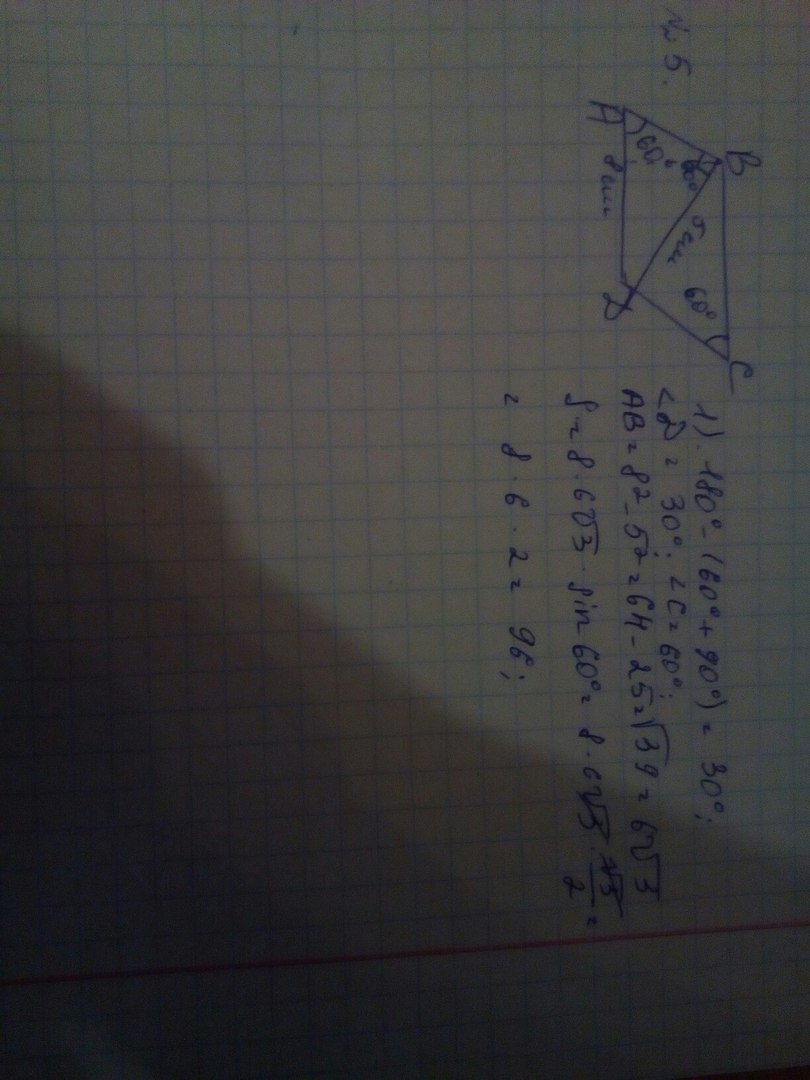 № 5.
B
C
A
D
60°
90°
5 см
60°
8 см
1). 180° - (60° + 90°) = 30°;
∠D = 30°; ∠C = 60°;
AB = 8² - 5² = 64 - 25 = √39 = 6√3
S = 8 · 6√3 · sin 60° = 8 · 6√3 · √3/2 =
= 8 · 6 · 2 = 96;